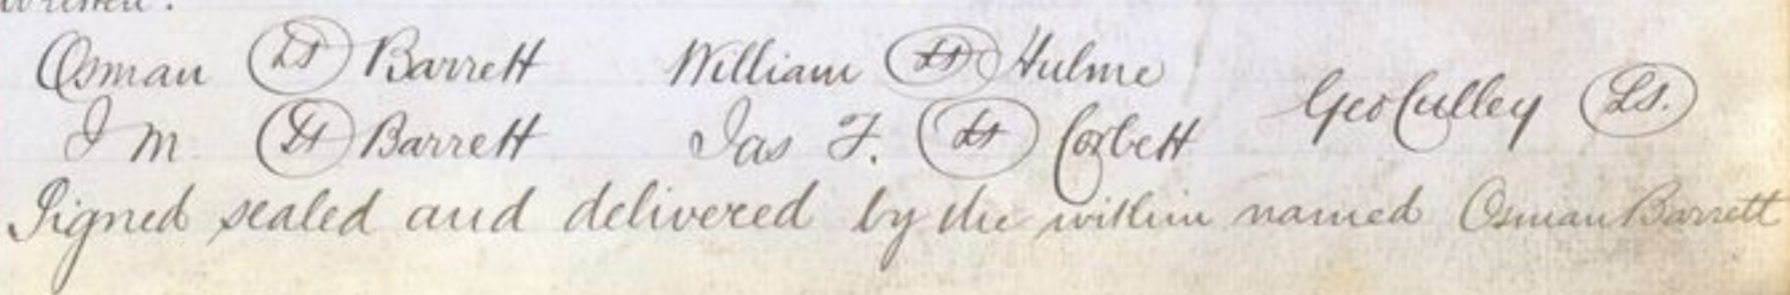 written.
Osman LS Barrett William LS Hulme
Geo Culley L.S.
J M. LS Barrett Jas F. LS Corbett
Signed sealed and delivered by the within named Osman Barrett